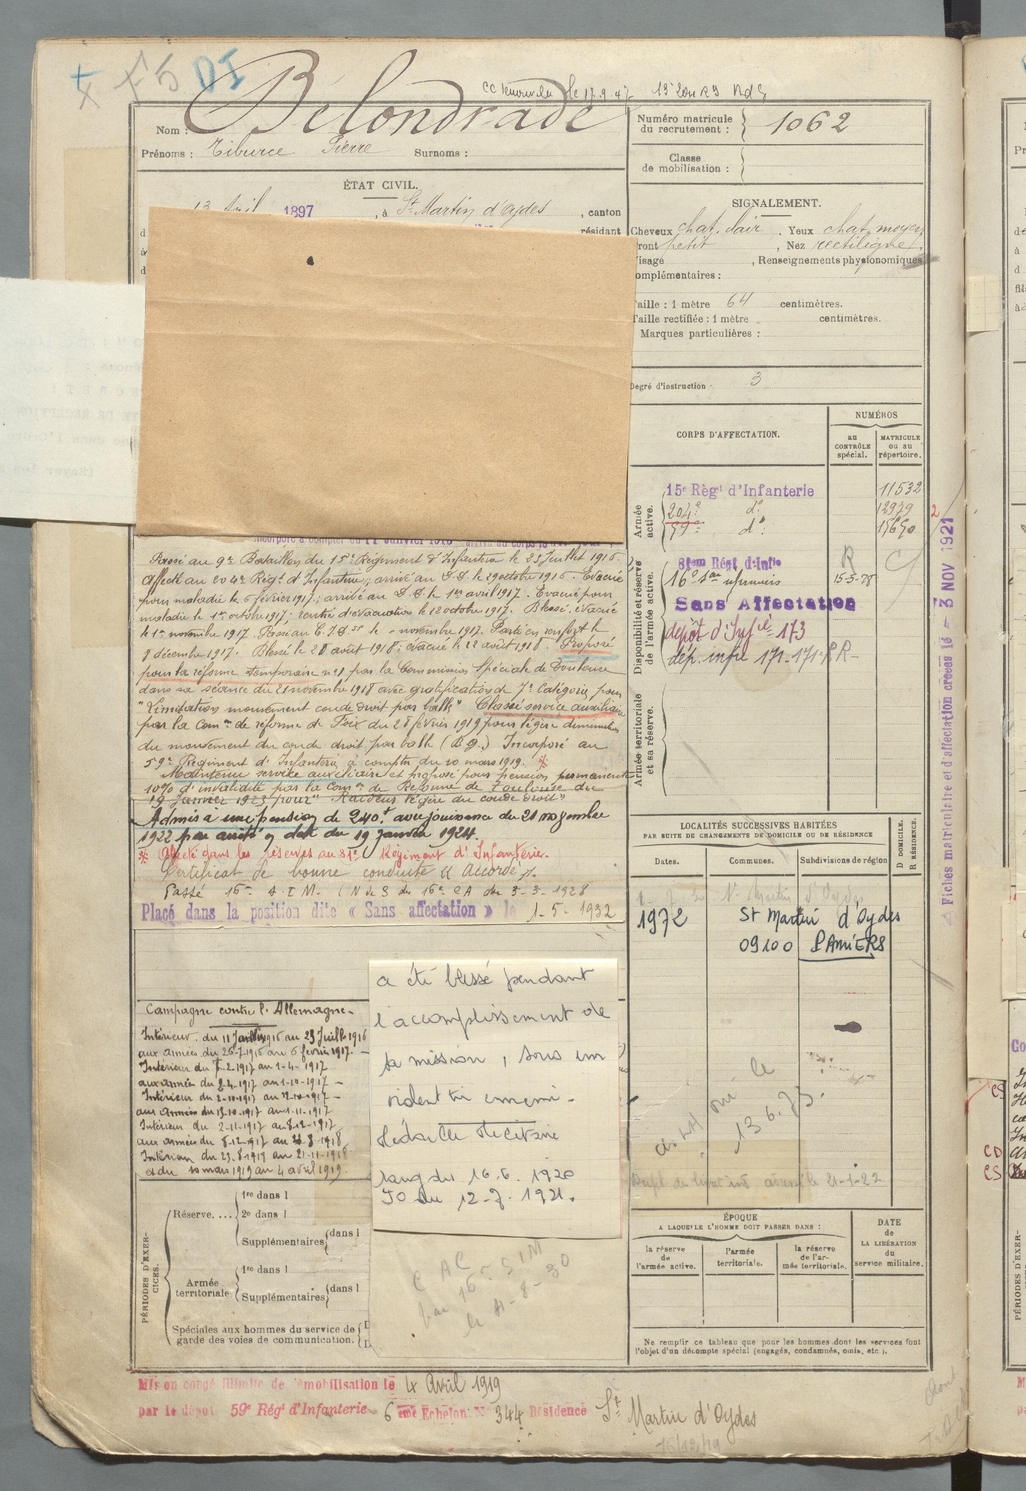 Bélondrade
Nom :
Prénoms : Tiburce Pierre Surnoms :
Numéro matricule
du recrutement : 1062
Classe
de mobilisation :
ÉTAT CIVIL.
13 Avril 1897, à St Martin d'Oydes, canton
résidant
SIGNALEMENT.
Cheveux chat. clair. Yeux chat. moyen
Front petit, Nez rectiligne.
Visage , Renseignements physionomiques
complémentaires :
Taille : 1 mètre 64 centimètres.
Taille rectifiée : 1 mètre centimètres.
Marques particulières :
Degré d'instruction 3
CORPS D'AFFECTATION.
NUMÉROS
AU CONTRÔLE spécial.
MATRICULE OU AU répertoire.
Armée active.
15e Régt d'Infanterie 11532
204e do 12979
59e do 15650
Disponibilité et réserve de l'armée active.
81em Régt d'Infie R
16e Son infirmiers 15-3-28
Sans Affectation
dépôt d'Infie 173
dép. infie 171-171e R R-
Armée territoriale et sa réserve.
Fiches matriculaire et d'affectation créées le - 3 NOV 1921
Incorporé à compter du 11 Janvier 1916
Passé au 9e Bataillon du 15e Régiment d'Infanterie le 23 Juillet 1916.
Affecté au 204e Régt d'Infanterie, arrivé au d. d. le 29 octobre 1916. Evacué
pour maladie le 6 février 1917; arrivé au d. d. le 1er avril 1917. Evacué pour
maladie le 1er octobre 1917; rentré d'évacuation le 12 octobre 1917. Blessé évacué
le 1er novembre 1917. Passé au novembre 1917. Parti en renfort le
8 décembre 1917. Blessé le 20 août 1918; évacué le 22 août 1918. Proposé
pour la réforme temporaire no 1 par la Commission Spéciale de Toulouse
dans sa séance du 21 novembre 1918 avec gratification de 7e Catégorie, pour
"Limitation mouvement coude droit par balle" Classé service auxiliaire
par la Comon de réforme de Foix du 28 février 1919 pour légère diminution
du mouvement du coude droit par balle (B.G.) Incorporé au
59e Régiment d'Infanterie à compter du 10 mars 1919.
Maintenu service auxiliaire et proposé pour pension permanente
10% d'invalidité par la Comon de Réforme de Toulouse du
19 Janvier 1923 pour "Raideur légère du coude droit"
Admis à une pension de 240f avec jouissance du 21 novembre
1922 par arrêté en date du 19 janvier 1924.
Affecté dans les réserves au 81e Régiment d'Infanterie.
Certificat de bonne conduite "Accordé".
Passé 16e S.I.M. (N de S du 16e CA du 3-3-1928
Placé dans la position dite « Sans affectation » le 1-5-1932
LOCALITÉS SUCCESSIVES HABITÉES
PAR SUITE DE CHANGEMENTS DE DOMICILE OU DE RÉSIDENCE
Dates. Communes. Subdivisions de région
D DOMICILE. R RÉSIDENCE.
1972 St Martin d'Oydes
09100 PAMIERS
13 6. 73.
Campagne contre l'Allemagne-
Intérieur du 11 Janvier 1916 au 23 Juillet 1916
aux armées du 26-7-1916 au 6 février 1917.-
Intérieur du 7-2-1917 au 1-4-1917
aux armées du 2-4-1917 au 1-10-1917 -
Intérieur du 2-10-1917 au 12-10-1917 -
aux armées du 13-10-1917 au 1-11-1917
Intérieur du 2-11-1917 au 8-12-1917
aux armées du 8-12-1917 au 22-8-1918
Intérieur du 23-8-1918 au 21-11-1918
et du 10 mars 1919 au 4 avril 1919.
a été blessé pendant
l'accomplissement de
sa mission, sous un
violent tir ennemi.
Médaille Militaire
rang du 16.6.1920
JO du 12-7-1921.
PÉRIODES D'EXERCICES.
Réserve....
1re dans l
2e dans l
Supplémentaires dans l
Armée territoriale
1re dans l
Supplémentaires dans l
Spéciales aux hommes du service de
garde des voies de communication.
ÉPOQUE
A LAQUELLE L'HOMME DOIT PASSER DANS :
la réserve de l'armée active.
l'armée territoriale.
la réserve de l'armée territoriale.
DATE de LA LIBÉRATION du service militaire.
Ne remplir ce tableau que pour les hommes dont les services font
l'objet d'un décompte spécial (engagés, condamnés, omis, etc.).
Mis en congé illimité de démobilisation le 4 Avril 1919
par le dépôt 59e Régt d'Infanterie 6eme Echelon No 344 Résidence St Martin d'Oydes